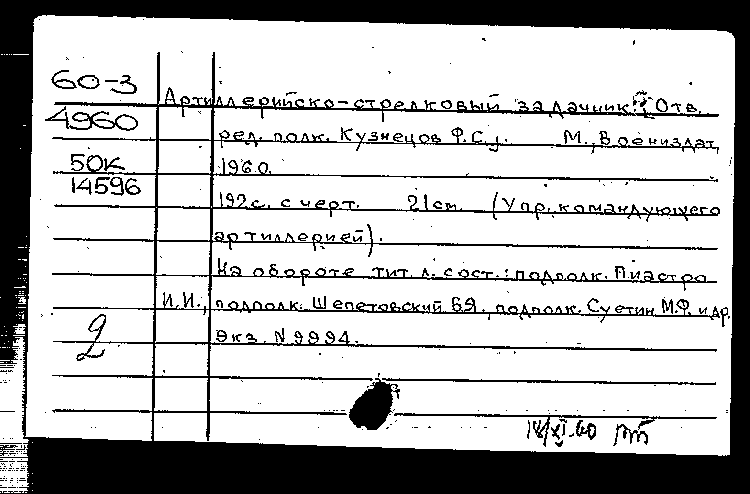 60-3
4960
50к
14596
2
Артиллерийско-стрелковый задачник. Отв.
ред. полк. Кузнецов Ф.С.,. М., Воениздат,
1960.
192с. с черт. 21см. (Упр. командующего
артиллерией).
На обороте тит. л. сост.: подполк. Пиастро
И.И., подполк. Шепетовский Б.Я., подполк. Суетин М.Ф. и др.
Экз. N 9994.
/XI-60